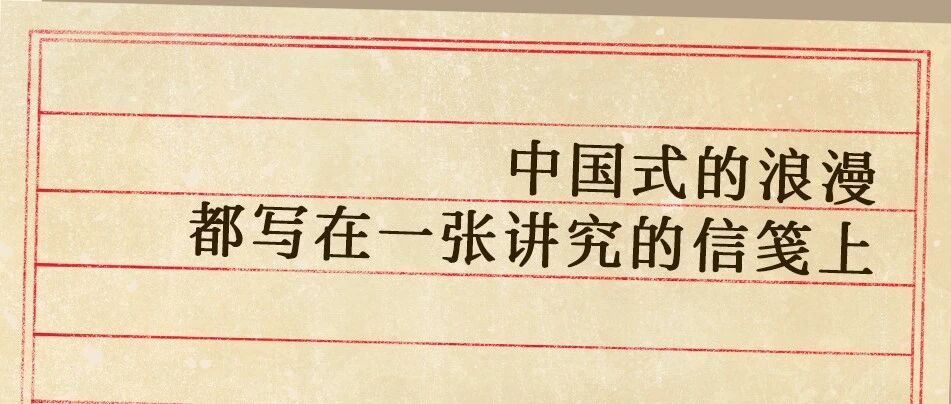 中国式的浪漫
都写在一张讲究的信笺上